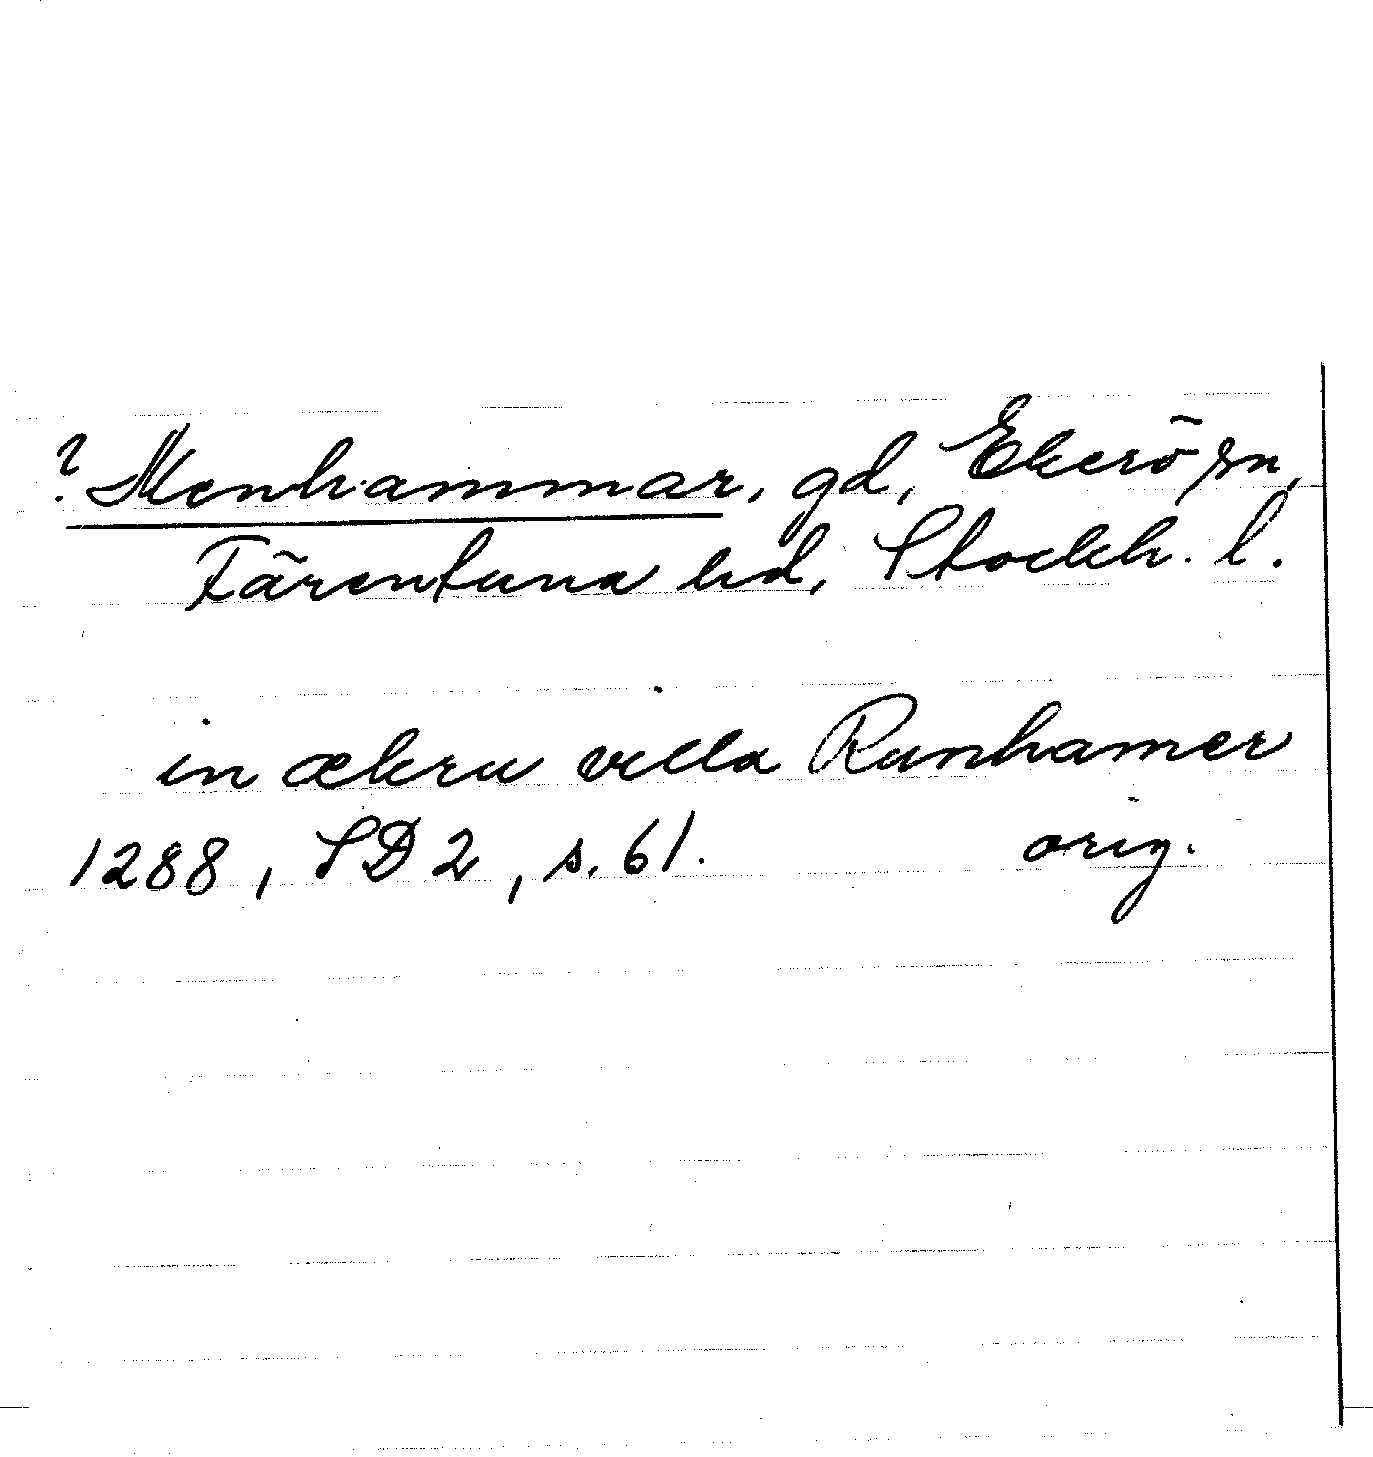 ? Menhammar, gd, Ekerö sn,
Färentuna hd, Stockh. l.
in œkru villa Runhamer
1288, SD 2, s. 61. orig.